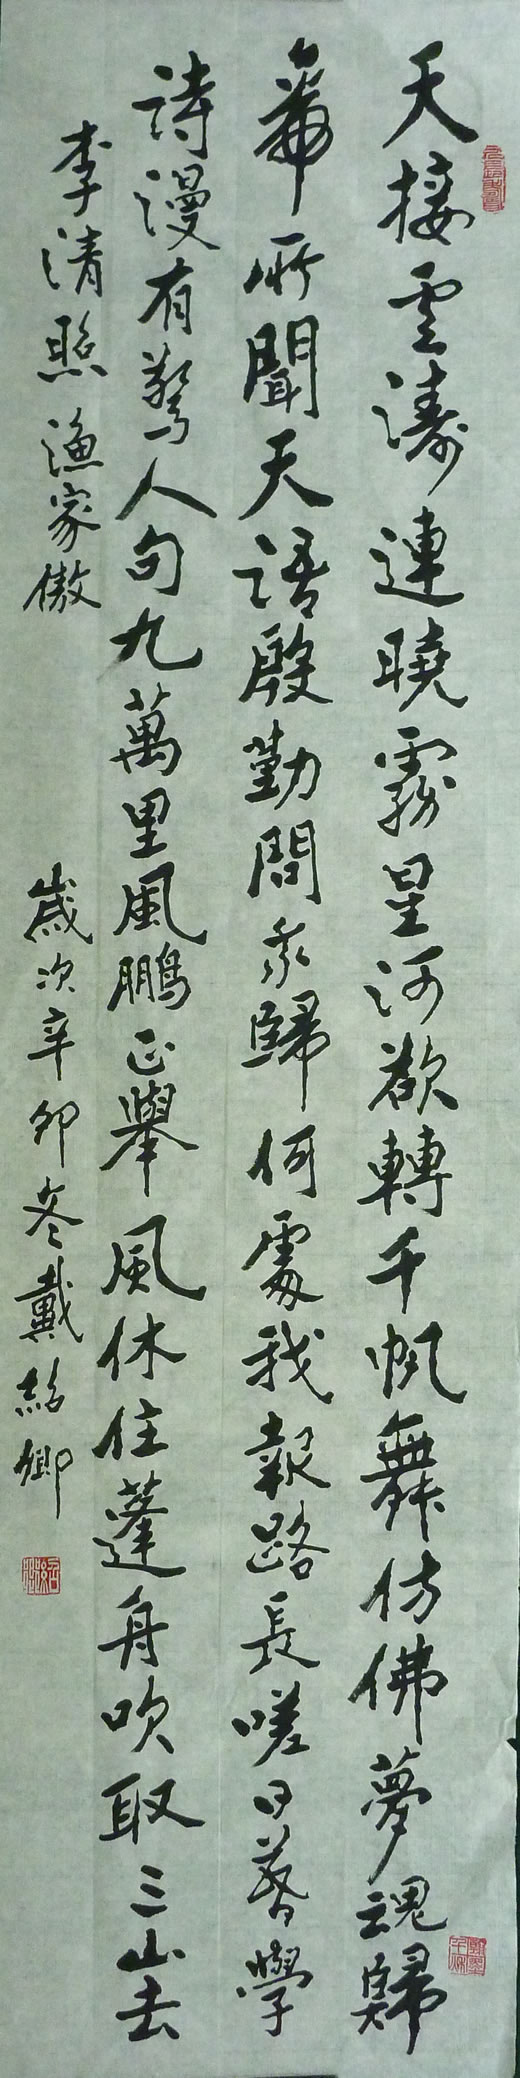 天接雲濤連曉霧星河欲轉千帆舞仿佛夢魂歸
帝所聞天語殷勤問我歸何處我報路長嗟日暮學
詩漫有驚人句九萬里風鵬正舉風休住蓬舟吹取三山去
李清照漁家傲
歲次辛卯冬戴紹卿